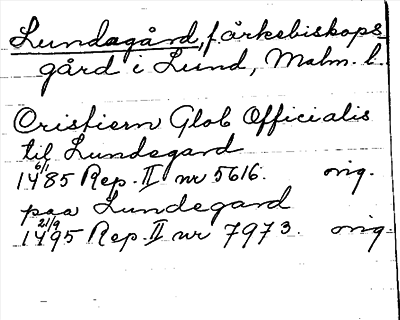 Lundagård, f. ärkebiskops-
gård i Lund, Malm. l.
Cristiern Glob Officialis
til Lundegard
6/1 1485 Rep. II nr 5616. orig.
paa Lundegard
21/9 1495 Rep. II nr 7973. orig.